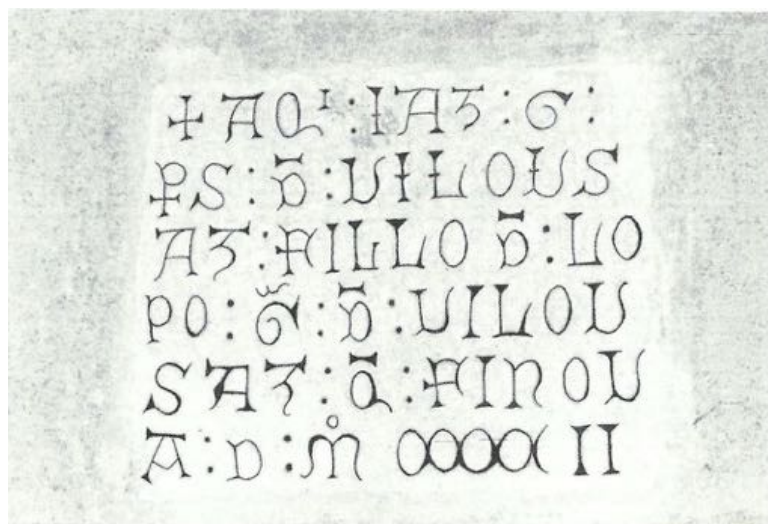 + AQI : IAZ : G :
PS : D̄ : UILOUS
AZ : FILLO D̄ : LO
PO : G̃ : D̄ : UILOU
SAZ : Q̄ : FINOU
A : D : M̊ II